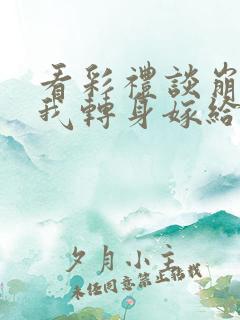 看彩禮談崩
我轉身嫁給
夕月小主
未经同意禁止转载